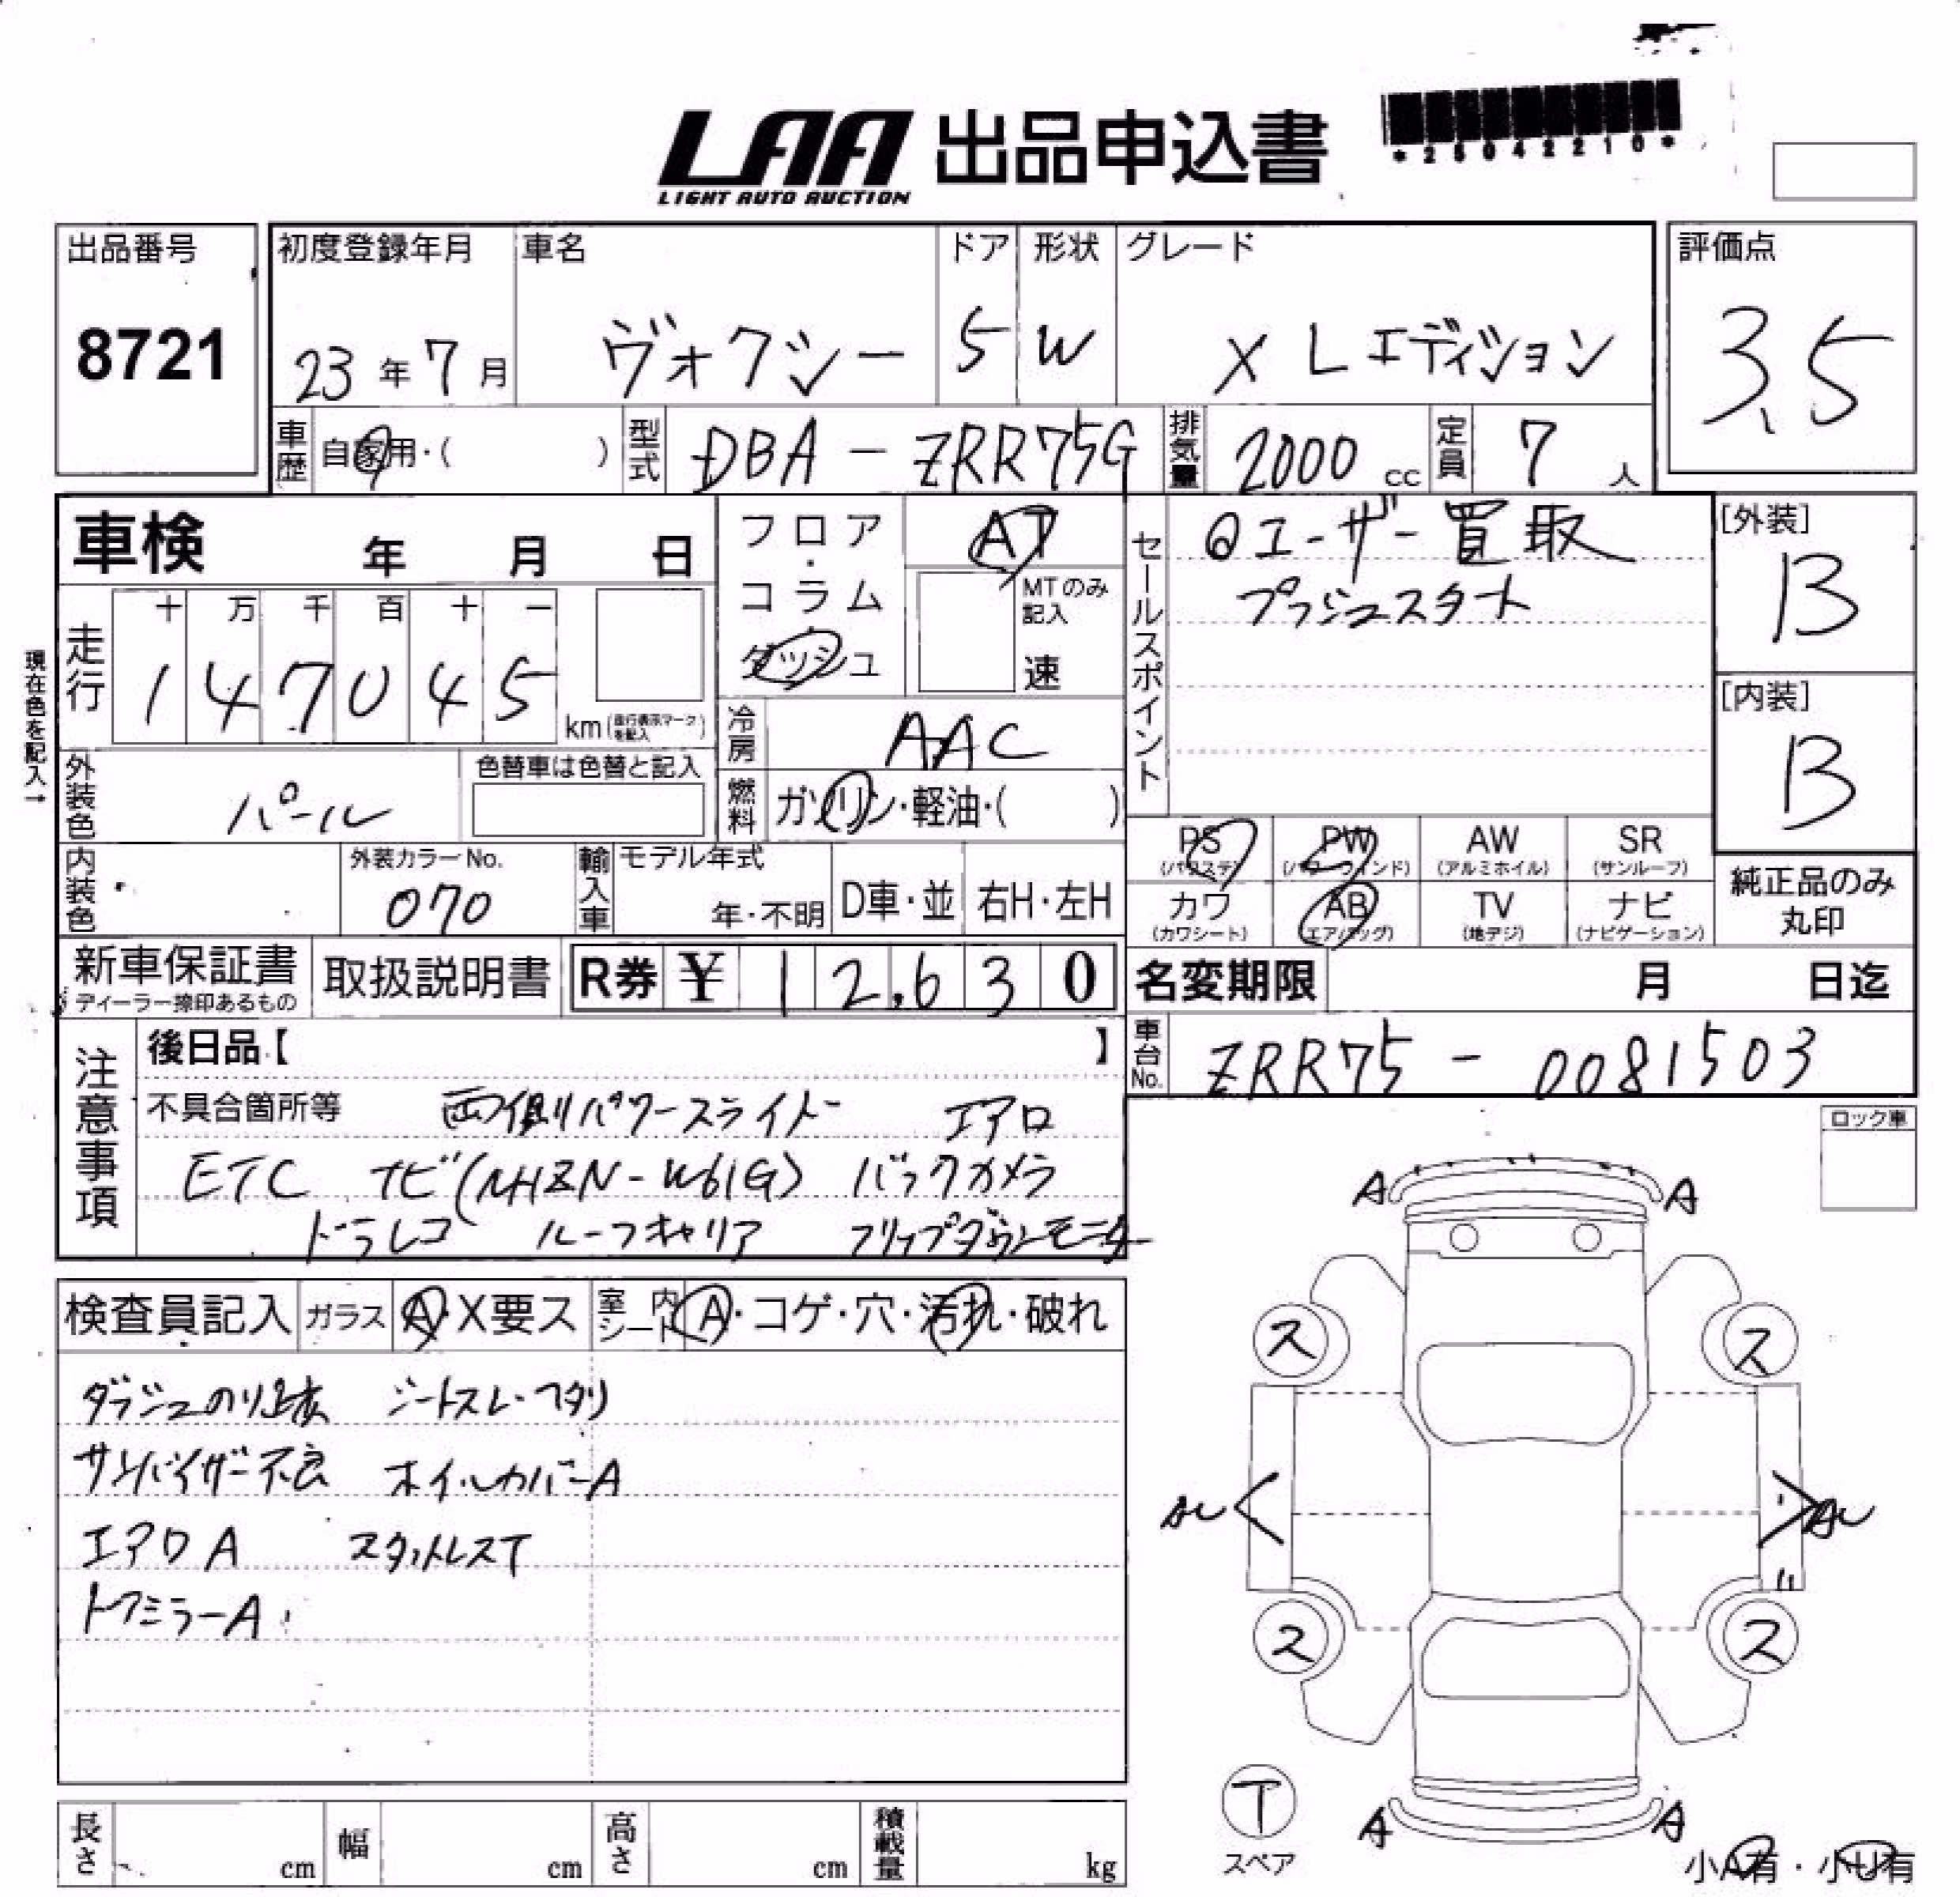 LAA 出品申込書
LIGHT AUTO AUCTION
*25042210*
出品番号
8721
初度登録年月
23年7月
車名
ヴォクシー
ドア
5
形状
W
グレード
X Lエディション
評価点
3.5
車歴
自家用・( )
型式
DBA-ZRR75G
排気量
2000cc
定員
7人
車検 年 月 日
現在色を記入→
走行
十 万 千 百 十 一
1 4 7 0 4 5
km(走行表示マークを記入)
フロア・コラム・ダッシュ
AT
MTのみ記入
速
冷房
AAC
燃料
ガソリン・軽油・( )
セールスポイント
@ユーザー買取
プッシュスタート
[外装]
B
[内装]
B
外装色
パール
色替車は色替と記入
内装色
外装カラーNo.
070
輸入車
モデル年式
年・不明
D車・並
右H・左H
PS
(パワステ)
PW
(パワーウィンド)
AW
(アルミホイル)
SR
(サンルーフ)
カワ
(カワシート)
AB
(エアバッグ)
TV
(地デジ)
ナビ
(ナビゲーション)
純正品のみ
丸印
新車保証書
ディーラー捺印あるもの
取扱説明書
R券 ¥ 12,630
名変期限 月 日迄
車台No.
ZRR75-0081503
注意事項
後日品【 】
不具合箇所等 両側パワースライド エアロ
ETC ナビ(NHZN-W61G) バックカメラ
ドラレコ ルーフキャリア フリップダウンモニター
ロック車
検査員記入
ガラス A・X要ス
室内シート A・コゲ・穴・汚れ・破れ
ダッシュのり跡 シートスレ・ヘタリ
サンバイザー不良 ホイールカバーA
エアロA スタットレスT
ドアミラーA
A A
ス ス
AU AU
ス ス
T
スペア
A A
小A有・小U有
長さ cm
幅 cm
高さ cm
積載量 kg